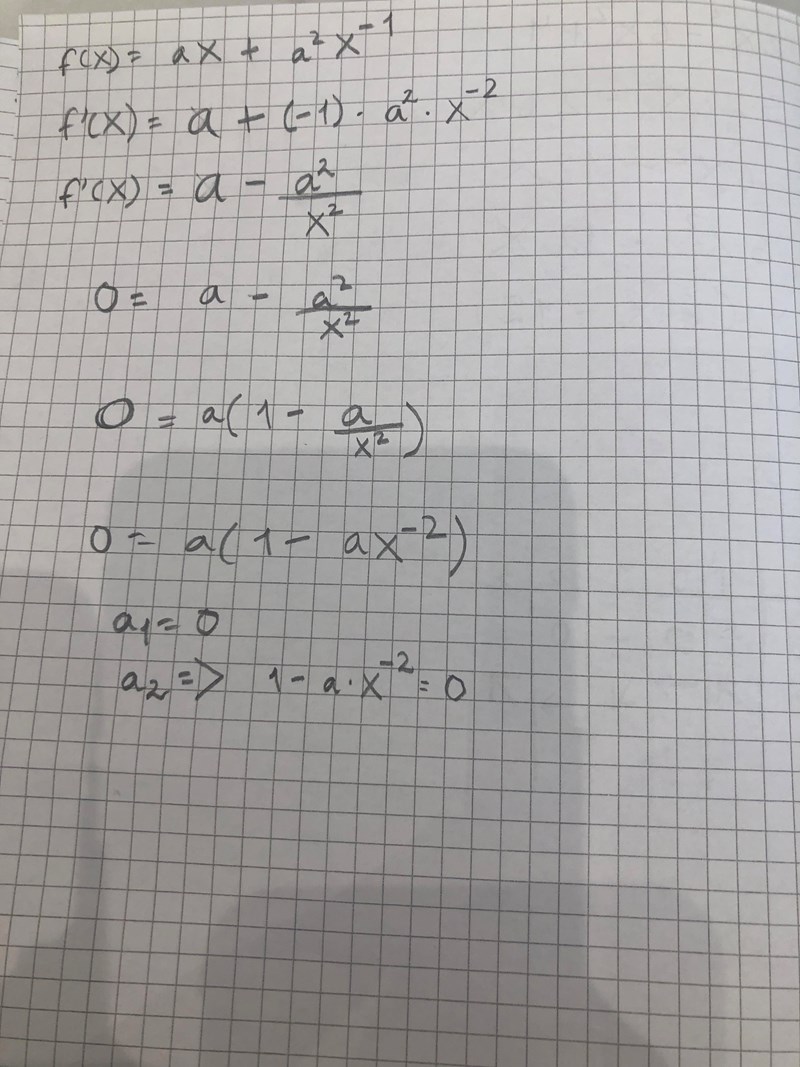 f(x) = ax + a² x⁻¹
f'(x) = a + (-1) · a² · x⁻²
f'(x) = a - a²/x²
0 = a - a²/x²
0 = a(1 - a/x²)
0 = a(1 - ax⁻²)
a₁ = 0
a₂ => 1 - a·x⁻² = 0